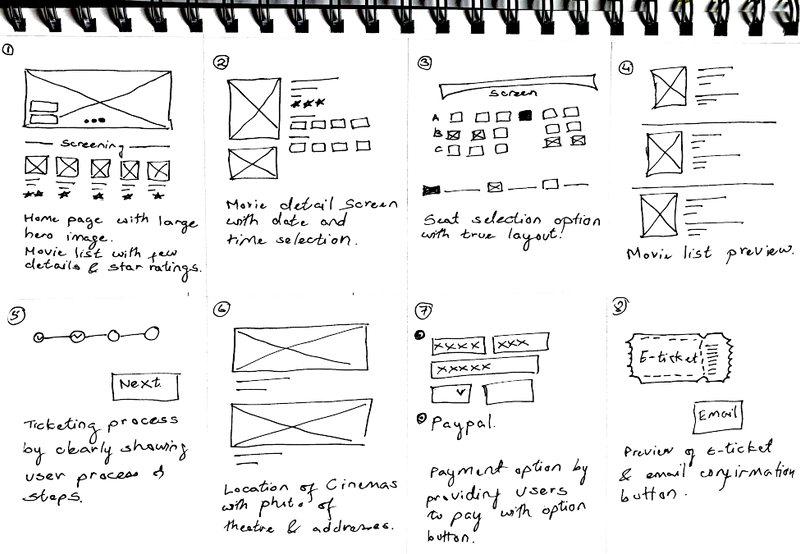 ①
Screening
Home page with large
hero image.
Movie list with few
details & star ratings.
②
Movie detail screen
with date and
time selection.
③
Screen
A
B
C
Seat selection option
with true layout.
④
Movie list preview.
⑤
Next
Ticketing process
by clearly showing
user process &
steps.
⑥
Location of Cinemas
with photo of
theatre & addresses.
⑦
xxxx xxx
xxxxx
Paypal.
Payment option by
providing users
to pay with option
button.
8
E-ticket
Email
Preview of E-ticket
& email confirmation
button.